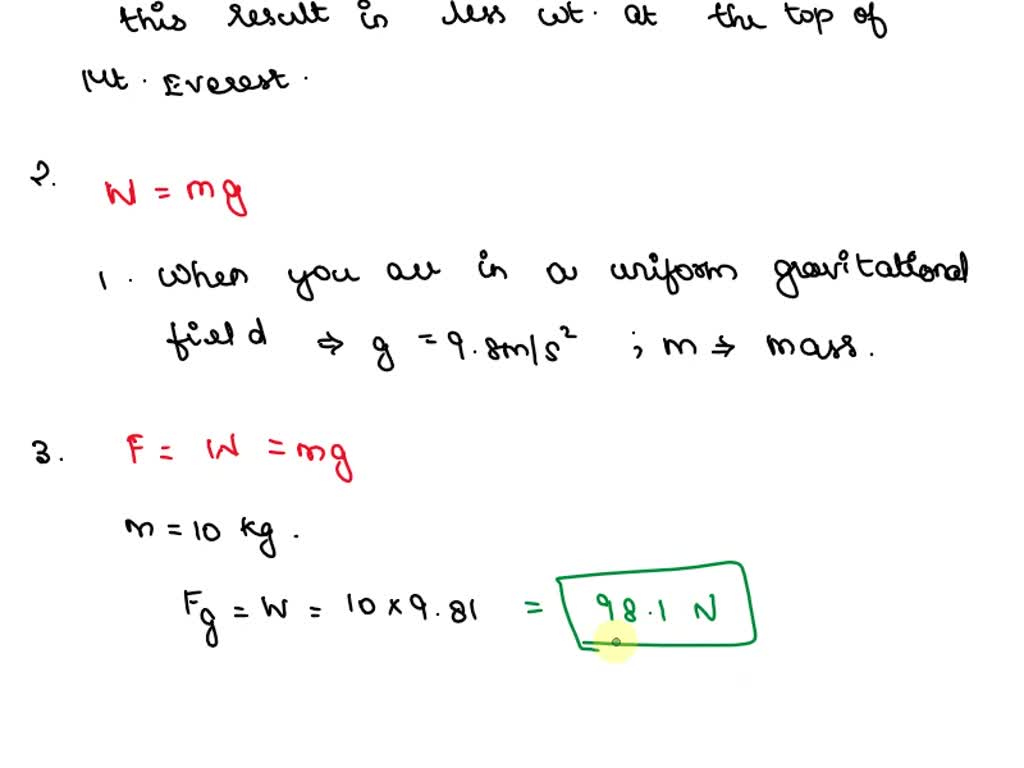 this result in less wt. at the top of
Mt. Everest.
2.
W = mg
1. When you are in a uniform gravitational
field ⇒ g = 9.8m/s² ; m ⇒ mass.
3. F = W = mg
m = 10 kg.
Fg = W = 10 × 9.81 = 98.1 N